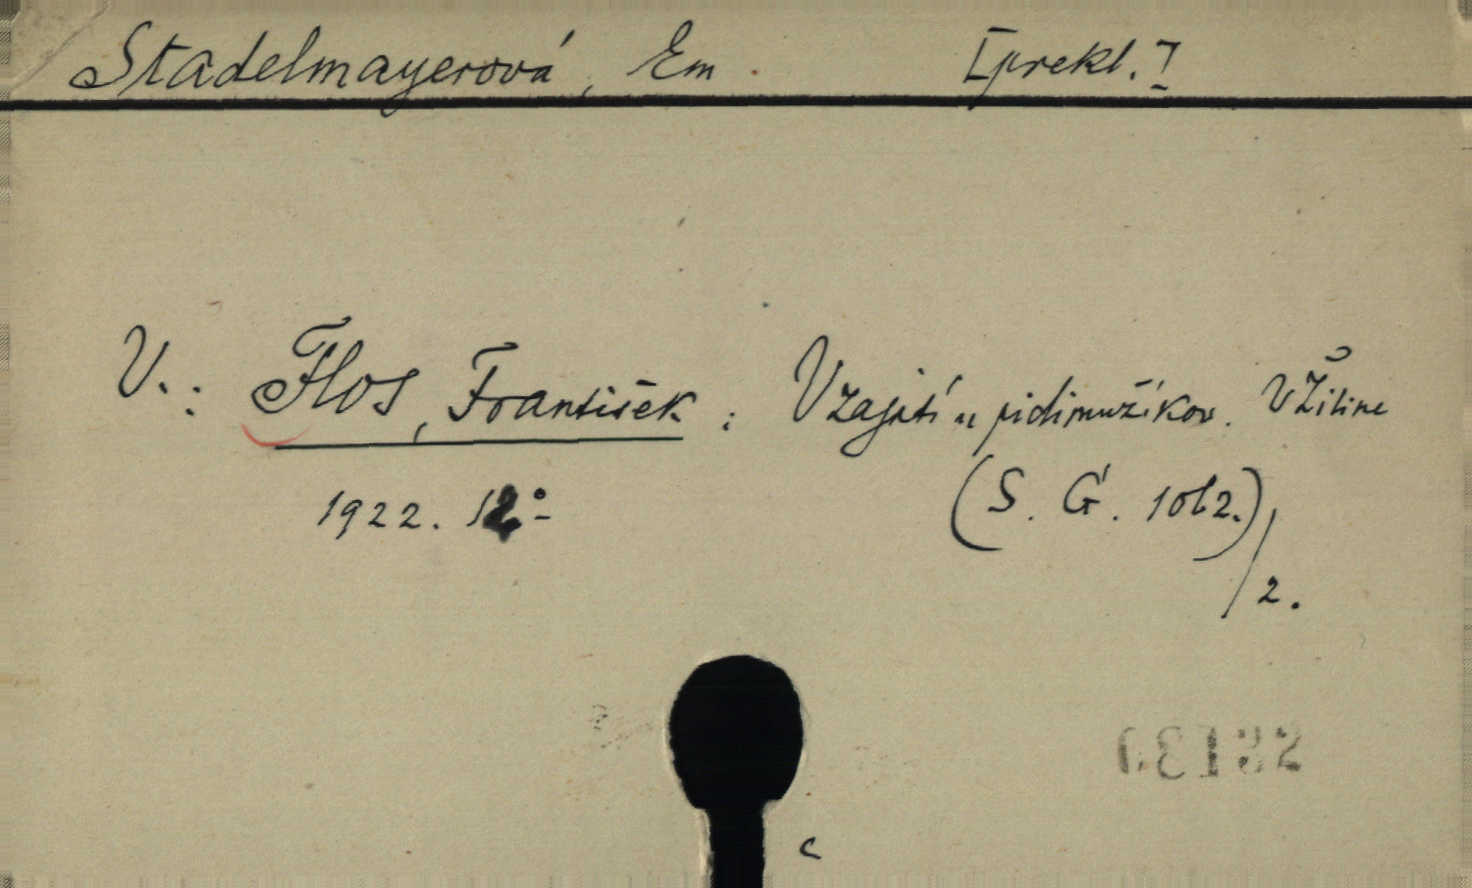 Stadelmayerová, Em. [prekl.]
V.: Flos, František: V zajatí u pidimužíkov. V Žiline
1922. 12°
(S. G. 1062.)
/2.
c